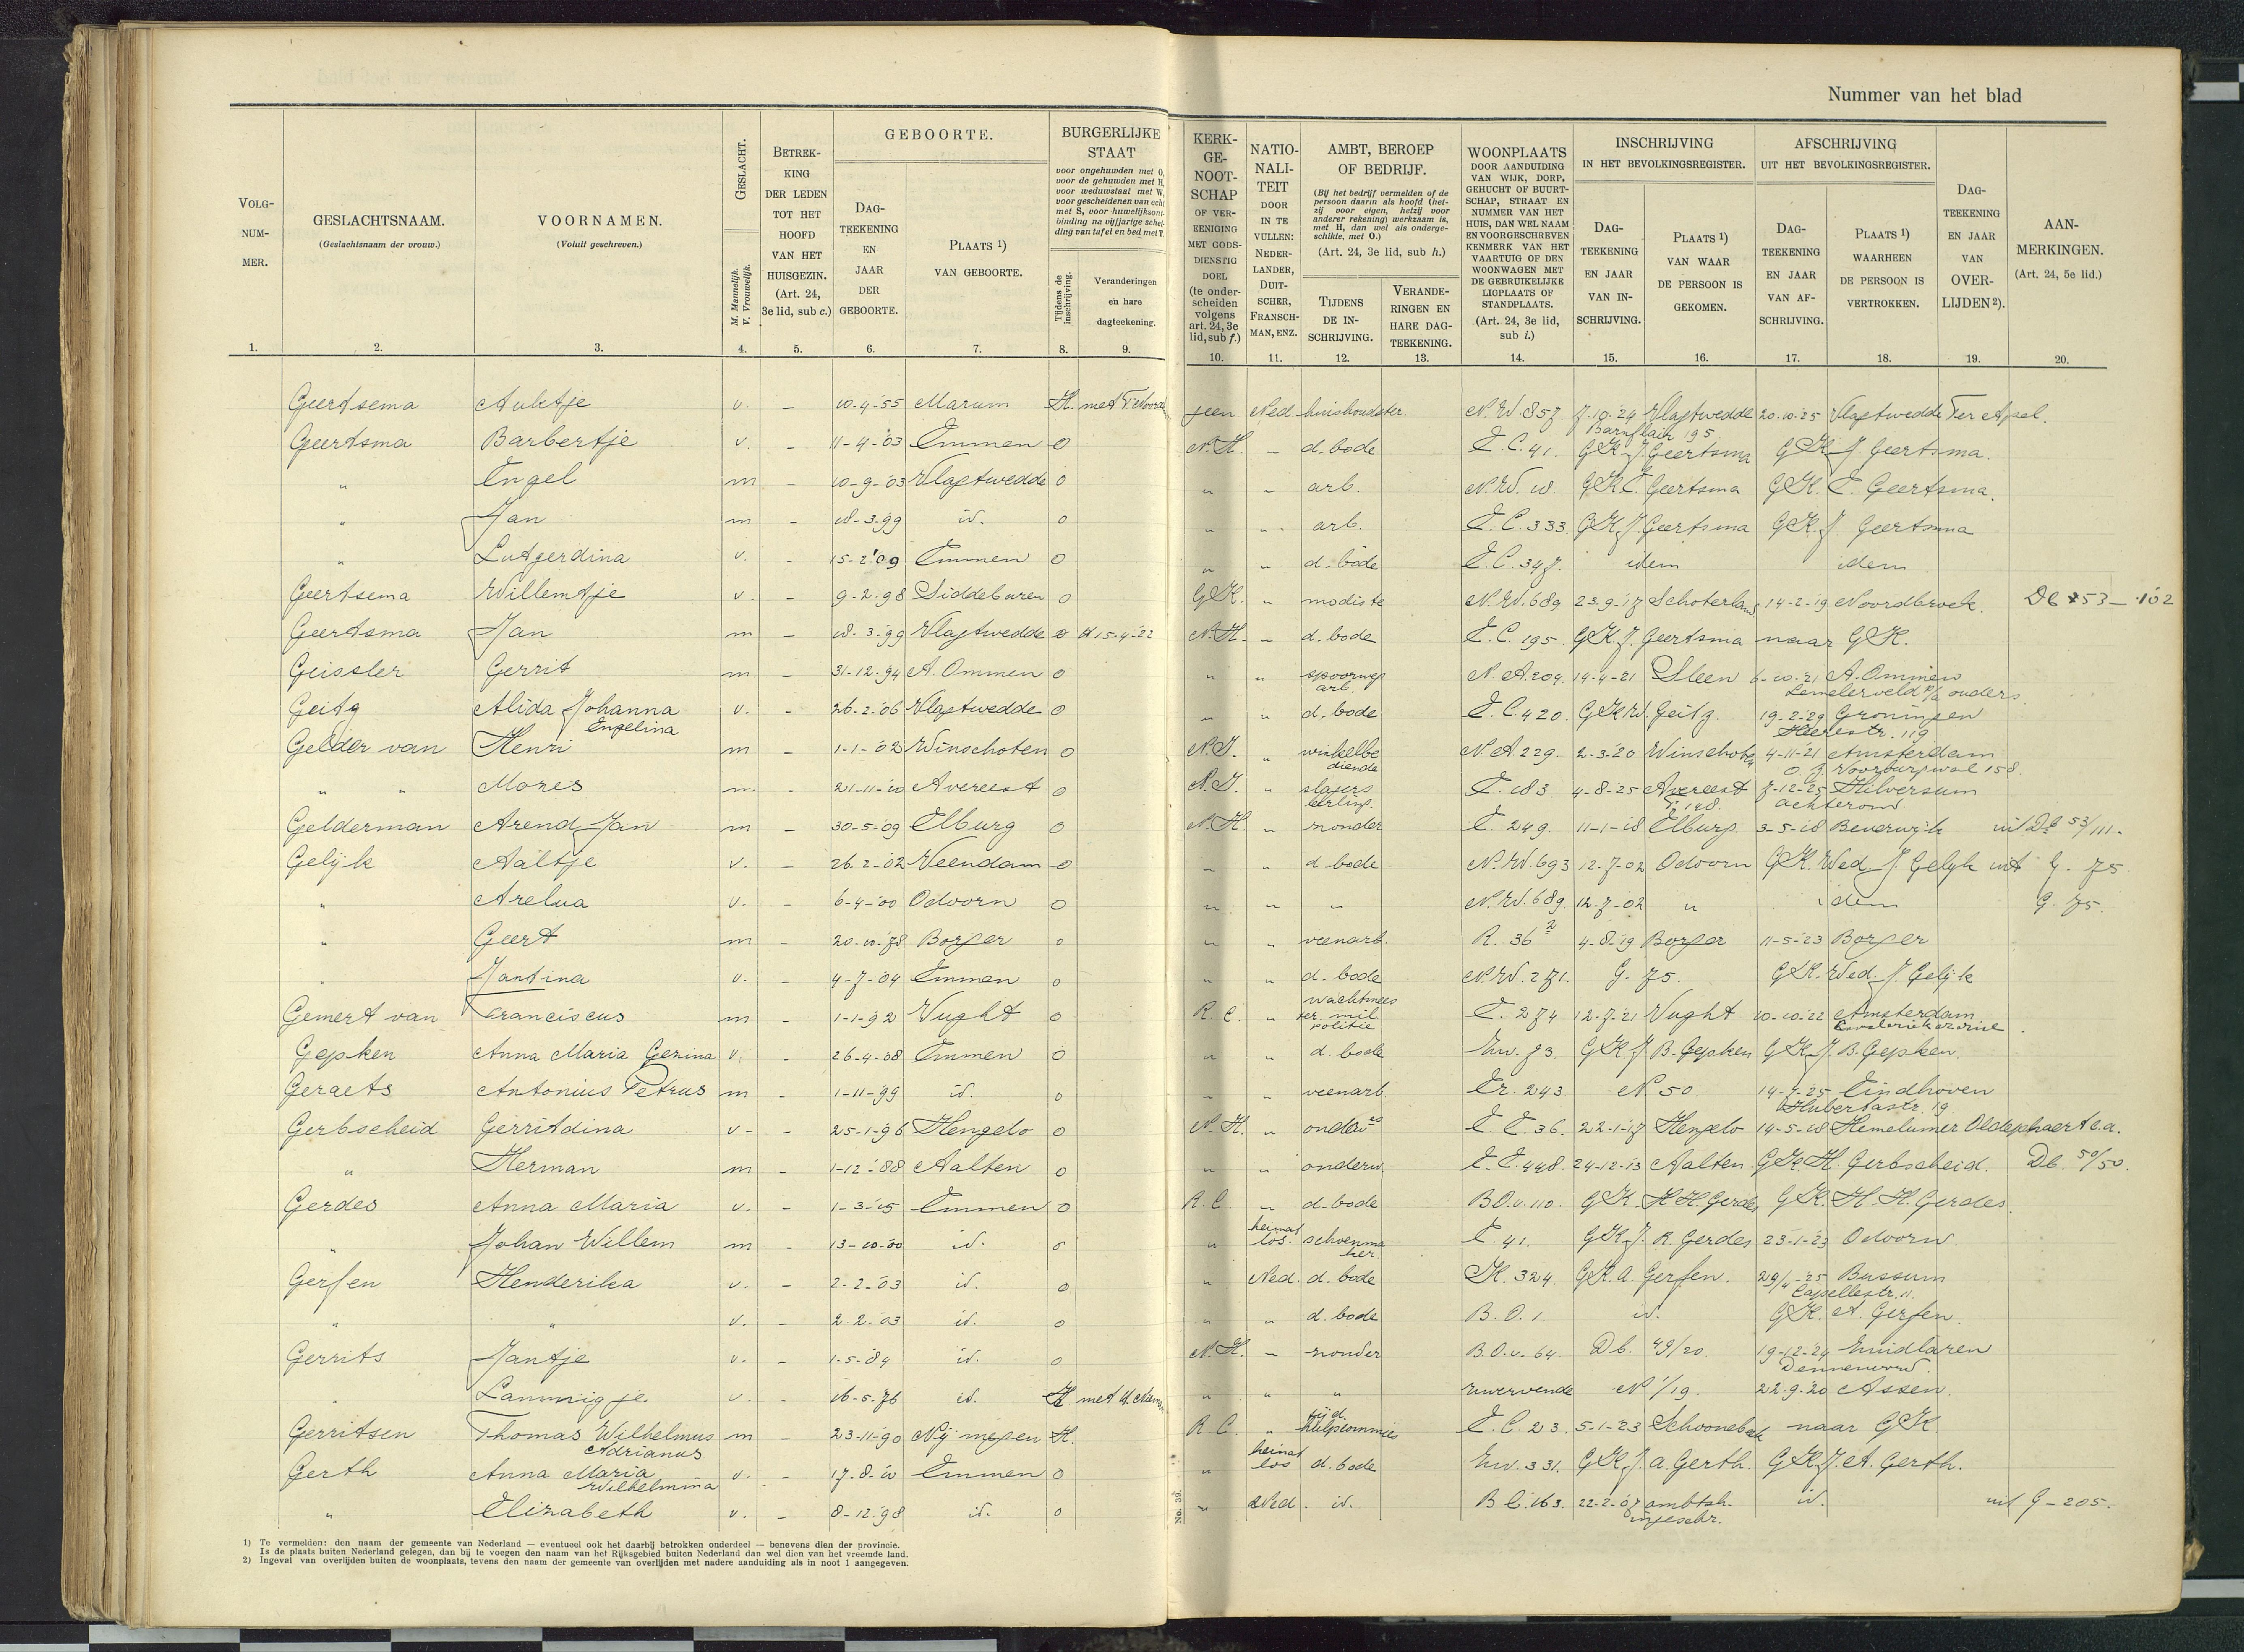 Nummer van het blad
VOLG-NUM-MER. 1.
GESLACHTSNAAM. (Geslachtsnaam der vrouw.) 2.
VOORNAMEN. (Voluit geschreven.) 3.
GESLACHT. M. Mannelijk. V. Vrouwelijk. 4.
BETREK-KING DER LEDEN TOT HET HOOFD VAN HET HUISGEZIN. (Art. 24, 3e lid, sub c.) 5.
GEBOORTE.
DAG-TEEKENING EN JAAR DER GEBOORTE. 6.
PLAATS 1) VAN GEBOORTE. 7.
BURGERLIJKE STAAT
voor ongehuwden met O, voor de gehuwden met H, voor weduwstaat met W, voor gescheidenen van echt met S, voor huwelijksont-binding na vijfjarige schei-ding van tafel en bed met T.
Tijdens de inschrijving. 8.
Veranderingen en hare dagteekening. 9.
KERK-GE-NOOT-SCHAP OF VER-EENIGING MET GODS-DIENSTIG DOEL (te onder-scheiden volgens art. 24, 3e lid, sub f.) 10.
NATIO-NALI-TEIT DOOR IN TE VULLEN: NEDER-LANDER, DUIT-SCHER, FRANSCH-MAN, ENZ. 11.
AMBT, BEROEP OF BEDRIJF.
(Bij het bedrijf vermelden of de persoon daarin als hoofd (het-zij voor eigen, hetzij voor anderer rekening) werkzaam is, met H, dan wel als onderge-schikte, met O.) (Art. 24, 3e lid, sub h.)
TIJDENS DE IN-SCHRIJVING. 12.
VERANDE-RINGEN EN HARE DAG-TEEKENING. 13.
WOONPLAATS DOOR AANDUIDING VAN WIJK, DORP, GEHUCHT OF BUURT-SCHAP, STRAAT EN NUMMER VAN HET HUIS, DAN WEL NAAM EN VOORGESCHREVEN KENMERK VAN HET VAARTUIG OF DEN WOONWAGEN MET DE GEBRUIKELIJKE LIGPLAATS OF STANDPLAATS. (Art. 24, 3e lid, sub i.) 14.
INSCHRIJVING IN HET BEVOLKINGSREGISTER.
DAG-TEEKENING EN JAAR VAN IN-SCHRIJVING. 15.
PLAATS 1) VAN WAAR DE PERSOON IS GEKOMEN. 16.
AFSCHRIJVING UIT HET BEVOLKINGSREGISTER.
DAG-TEEKENING EN JAAR VAN AF-SCHRIJVING. 17.
PLAATS 1) WAARHEEN DE PERSOON IS VERTROKKEN. 18.
DAG-TEEKENING EN JAAR VAN OVER-LIJDEN 2). 19.
AAN-MERKINGEN. (Art. 24, 5e lid.) 20.
Geertsema Auktje v. - 10-4-'55 Marum H. met geen Ned. huishoudster N.W. 857 7-10-24 Vlagtwedde Barnflair 195 20-10-25 Vlagtwedde Ter Apel.
Geertsma Barbertje v. - 11-4-'03 Emmen O N.H. - d. bode E.C. 41. GK J. Geertsma GK J. Geertsma.
" Engel m - 10-9-'03 Vlagtwedde O " - arb. N.W. 18. GK E. Geertsma GK. E. Geertsma.
" Jan m - 18-3-'99 id. O " " arb. E.C. 333 GK J. Geertsma GK. J Geertsma
" Lutgerdina v. - 15-2-'09 Emmen O " " d. bode E.C. 347. idem idem
Geertsema Willemtje v. - 9-2-98 Siddeburen O GK. " modiste N.W. 689 23-9-'17 Schoterland 14-2-'19 Noordbroek. Db 53 - 102
Geertsma Jan m - 18-3-'99 Vlagtwedde O H 15-4-'22 N.H. - d. bode E.C. 195 GK J. Geertsma naar GK.
Geissler Gerrit m - 31-12-94 A. Ommen O " " spoorweg arb. N.A. 204 14-4-21 Sleen 6-10-21 A. Ommen Lemelerveld p/a ouders
Geitz Alida Johanna Engelina v. - 26-2-'06 Vlagtwedde O " " d. bode E.C. 420. GK W. Geitz. 19-2-'29 Groningen Heerestr. 119
Gelder van Henri m - 1-1-'02 Winschoten O N.I. " winkelbediende N.A. 229. 2-3-'20 Winschoten 4-11-'21 Amsterdam O.Z. Voorburgwal 158
" " Mozes m - 21-11-'10 Avereest O N.I. " slagersleerling. E. 183 4-8-'25 Avereest 7-12-25 Hilversum achterom
Gelderman Arend Jan m - 30-5-'09 Elburg O N.H. " zonder E. 249 11-1-'18 Elburg. 3-5-'18 Beverwijk uit Db 53/111.
Gelijk Aaltje v. - 26-2-'02 Veendam O " " d bode N.W. 693 12-7-02 Odoorn GK. Wed J. Gelijk uit G. 75
" Arelua v. - 6-4-'00 Odoorn O " " " N.W. 689. 12-7-02 " idem G. 75.
" Geert m - 20-10-'78 Borger O " " veenarb. R. 36 2 4-8-'19 Borger 11-5-'23 Borger
" Jantina v. - 4-7-'04 Emmen O " " d. bode N.W. 271. G. 75. GK. Wed. J Gelijk
Gemert van Franciscus m - 1-1-92 Vught O R.C. " wachtmeester mil politie E. 274 12-7-'21 Vught 10-10-22 Amsterdam Cavaleriekazerne
Gepken Anna Maria Gezina v. - 26-4-'08 Emmen O " " d. bode Ew. 73. GK J. B. Gepken GK J. B. Gepken.
Geraets Antonius Petrus m - 1-11-'99 id. O " " veenarb. Er. 243 N 50 14-7-25 Eindhoven Hubertastr. 19
Gerbscheid Gerritdina v - 25-1-'96 Hengelo O N.H. " onderwes E.E. 36. 22-1-'17 Hengelo 14-5-'18 Hemelumer Oldephaert c.a.
" Herman m - 1-12-'88 Aalten O " " onderw. E.E. 448. 24-12-13 Aalten. GK H. Gerbscheid. Db. 50/50.
Gerdes Anna Maria v. - 1-3-'05 Emmen O R.C. " d. bode B.O.v. 110. GK. H.H. Gerdes GK. H.H. Gerdes.
" Johan Willem m - 13-10-'00 id. O " heimatlos. schoenmaker E. 41. GK J. R. Gerdes 23-1-'23 Odoorn
Gerfen Henderika v. - 2-2-'03 id. O " Ned. d. bode K. 324. GK. A. Gerfen. 29/4-'25 Bussum Capellestr. 11.
" " v. - 2-2-'03 id. O " " d. bode B.O. 1. id. GK. A. Gerfen.
Gerrits Jantje v. - 1-5-'84 id. O N.H. - zonder B.O.v. 64. Db. 49/20. 19-12-'24 Zuidlaren Dennenoord
" Lammigje. v. - 16-5-'76 id. H met " " " zwervende N 1/19. 22-9-'20 Assen.
Gerritsen Thomas Wilhelmus Adrianus m - 23-11-'90 Nijmegen H. R.C. " tijd. hulpcommies E.C. 23 5-1-'23 Schoonebeek naar GK
Gerth Anna Maria Wilhelmina v. - 17-8-'10 Emmen O " heimatlos d. bode Ew. 331. GK J. A. Gerth. GK J. A. Gerth.
" Elizabeth v. - 8-12-'98 id. O " Ned. id. B.C. 163. 22-2-'07 ambtsh. ingeschr. id. uit G - 205.
No. 39.
1) Te vermelden: den naam der gemeente van Nederland — eventueel ook het daarbij betrokken onderdeel — benevens dien der provincie.
Is de plaats buiten Nederland gelegen, dan bij te voegen den naam van het Rijksgebied buiten Nederland dan wel dien van het vreemde land.
2) Ingeval van overlijden buiten de woonplaats, tevens den naam der gemeente van overlijden met nadere aanduiding als in noot 1 aangegeven.